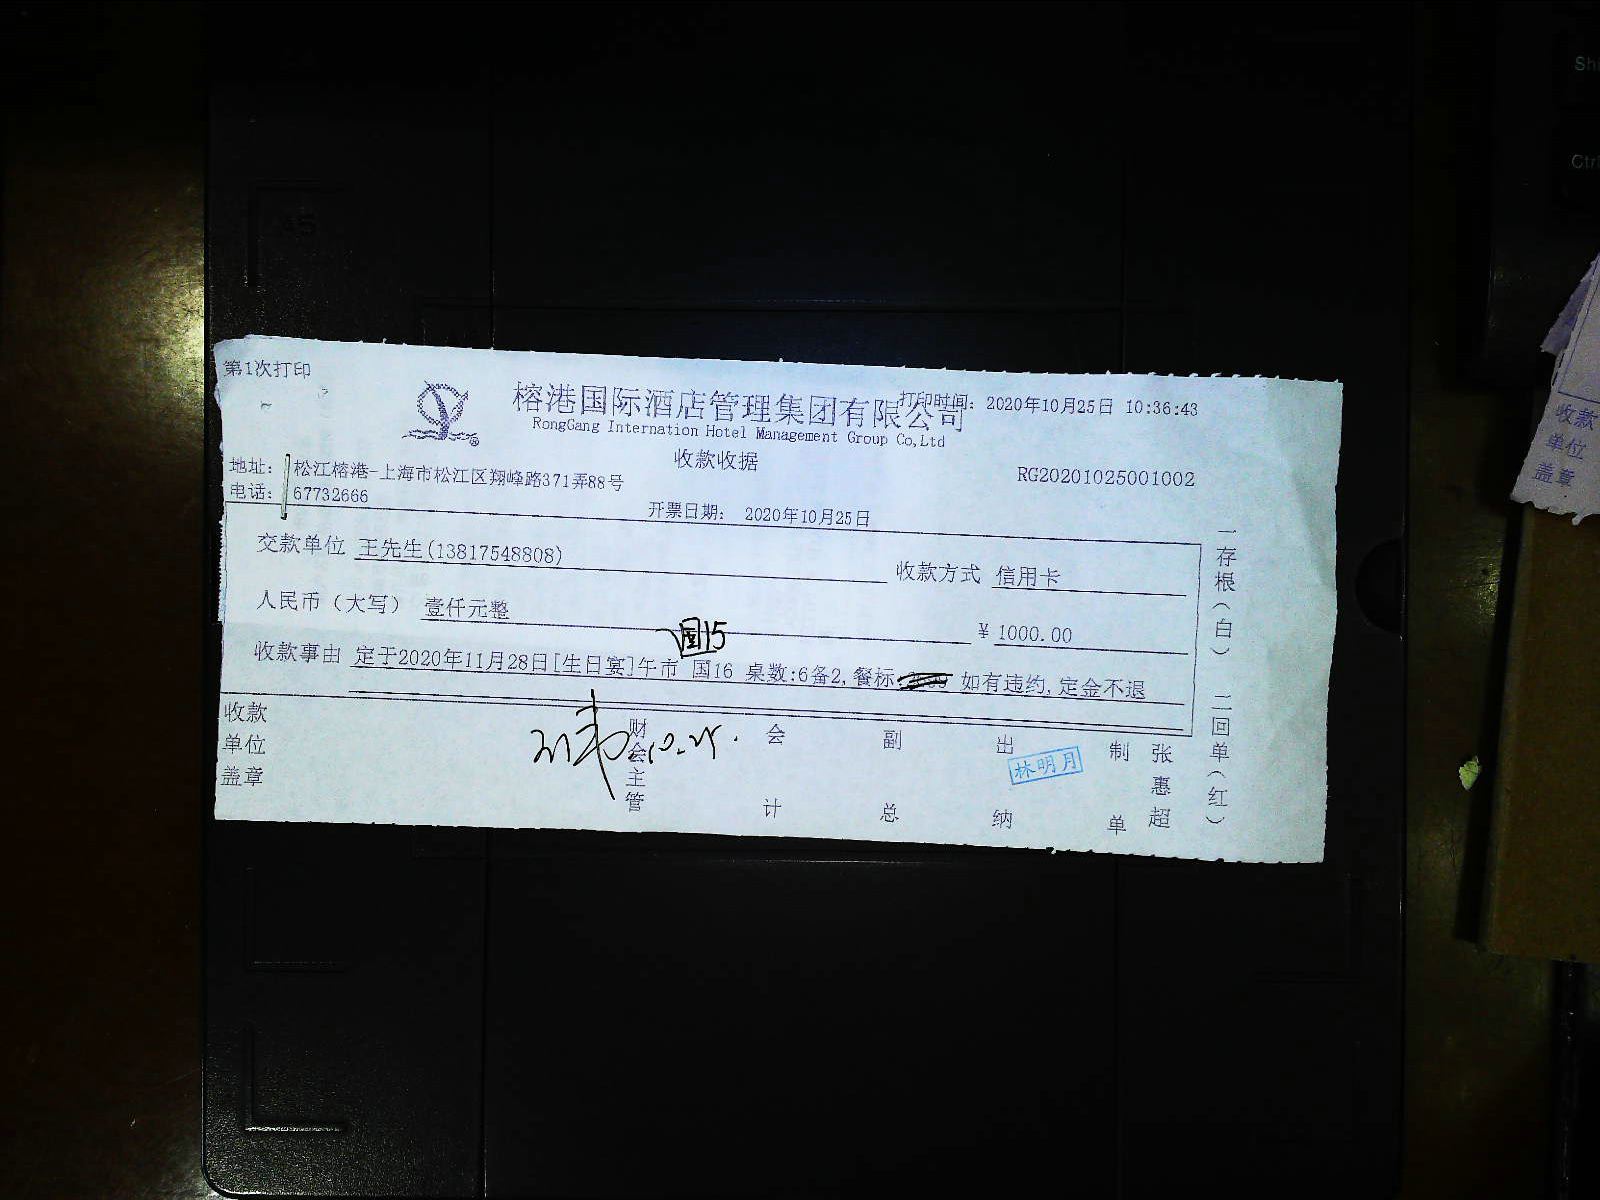 第1次打印
榕港国际酒店管理集团有限公司
打印时间: 2020年10月25日 10:36:43
RongGang Internation Hotel Management Group Co,Ltd
收款收据
地址: 松江榕港-上海市松江区翔峰路371弄88号
RG20201025001002
电话: 67732666
开票日期: 2020年10月25日
交款单位 王先生(13817548808)
收款方式 信用卡
人民币(大写) 壹仟元整
¥ 1000.00
国15
收款事由 定于2020年11月28日[生日宴]午市 国16 桌数:6备2,餐标 如有违约,定金不退
收款单位盖章
财会主管
10.25.
会计
副总
出纳
林明月
制单
张惠超
一存根(白)
二回单(红)
收款
单位
盖章
Ctrl